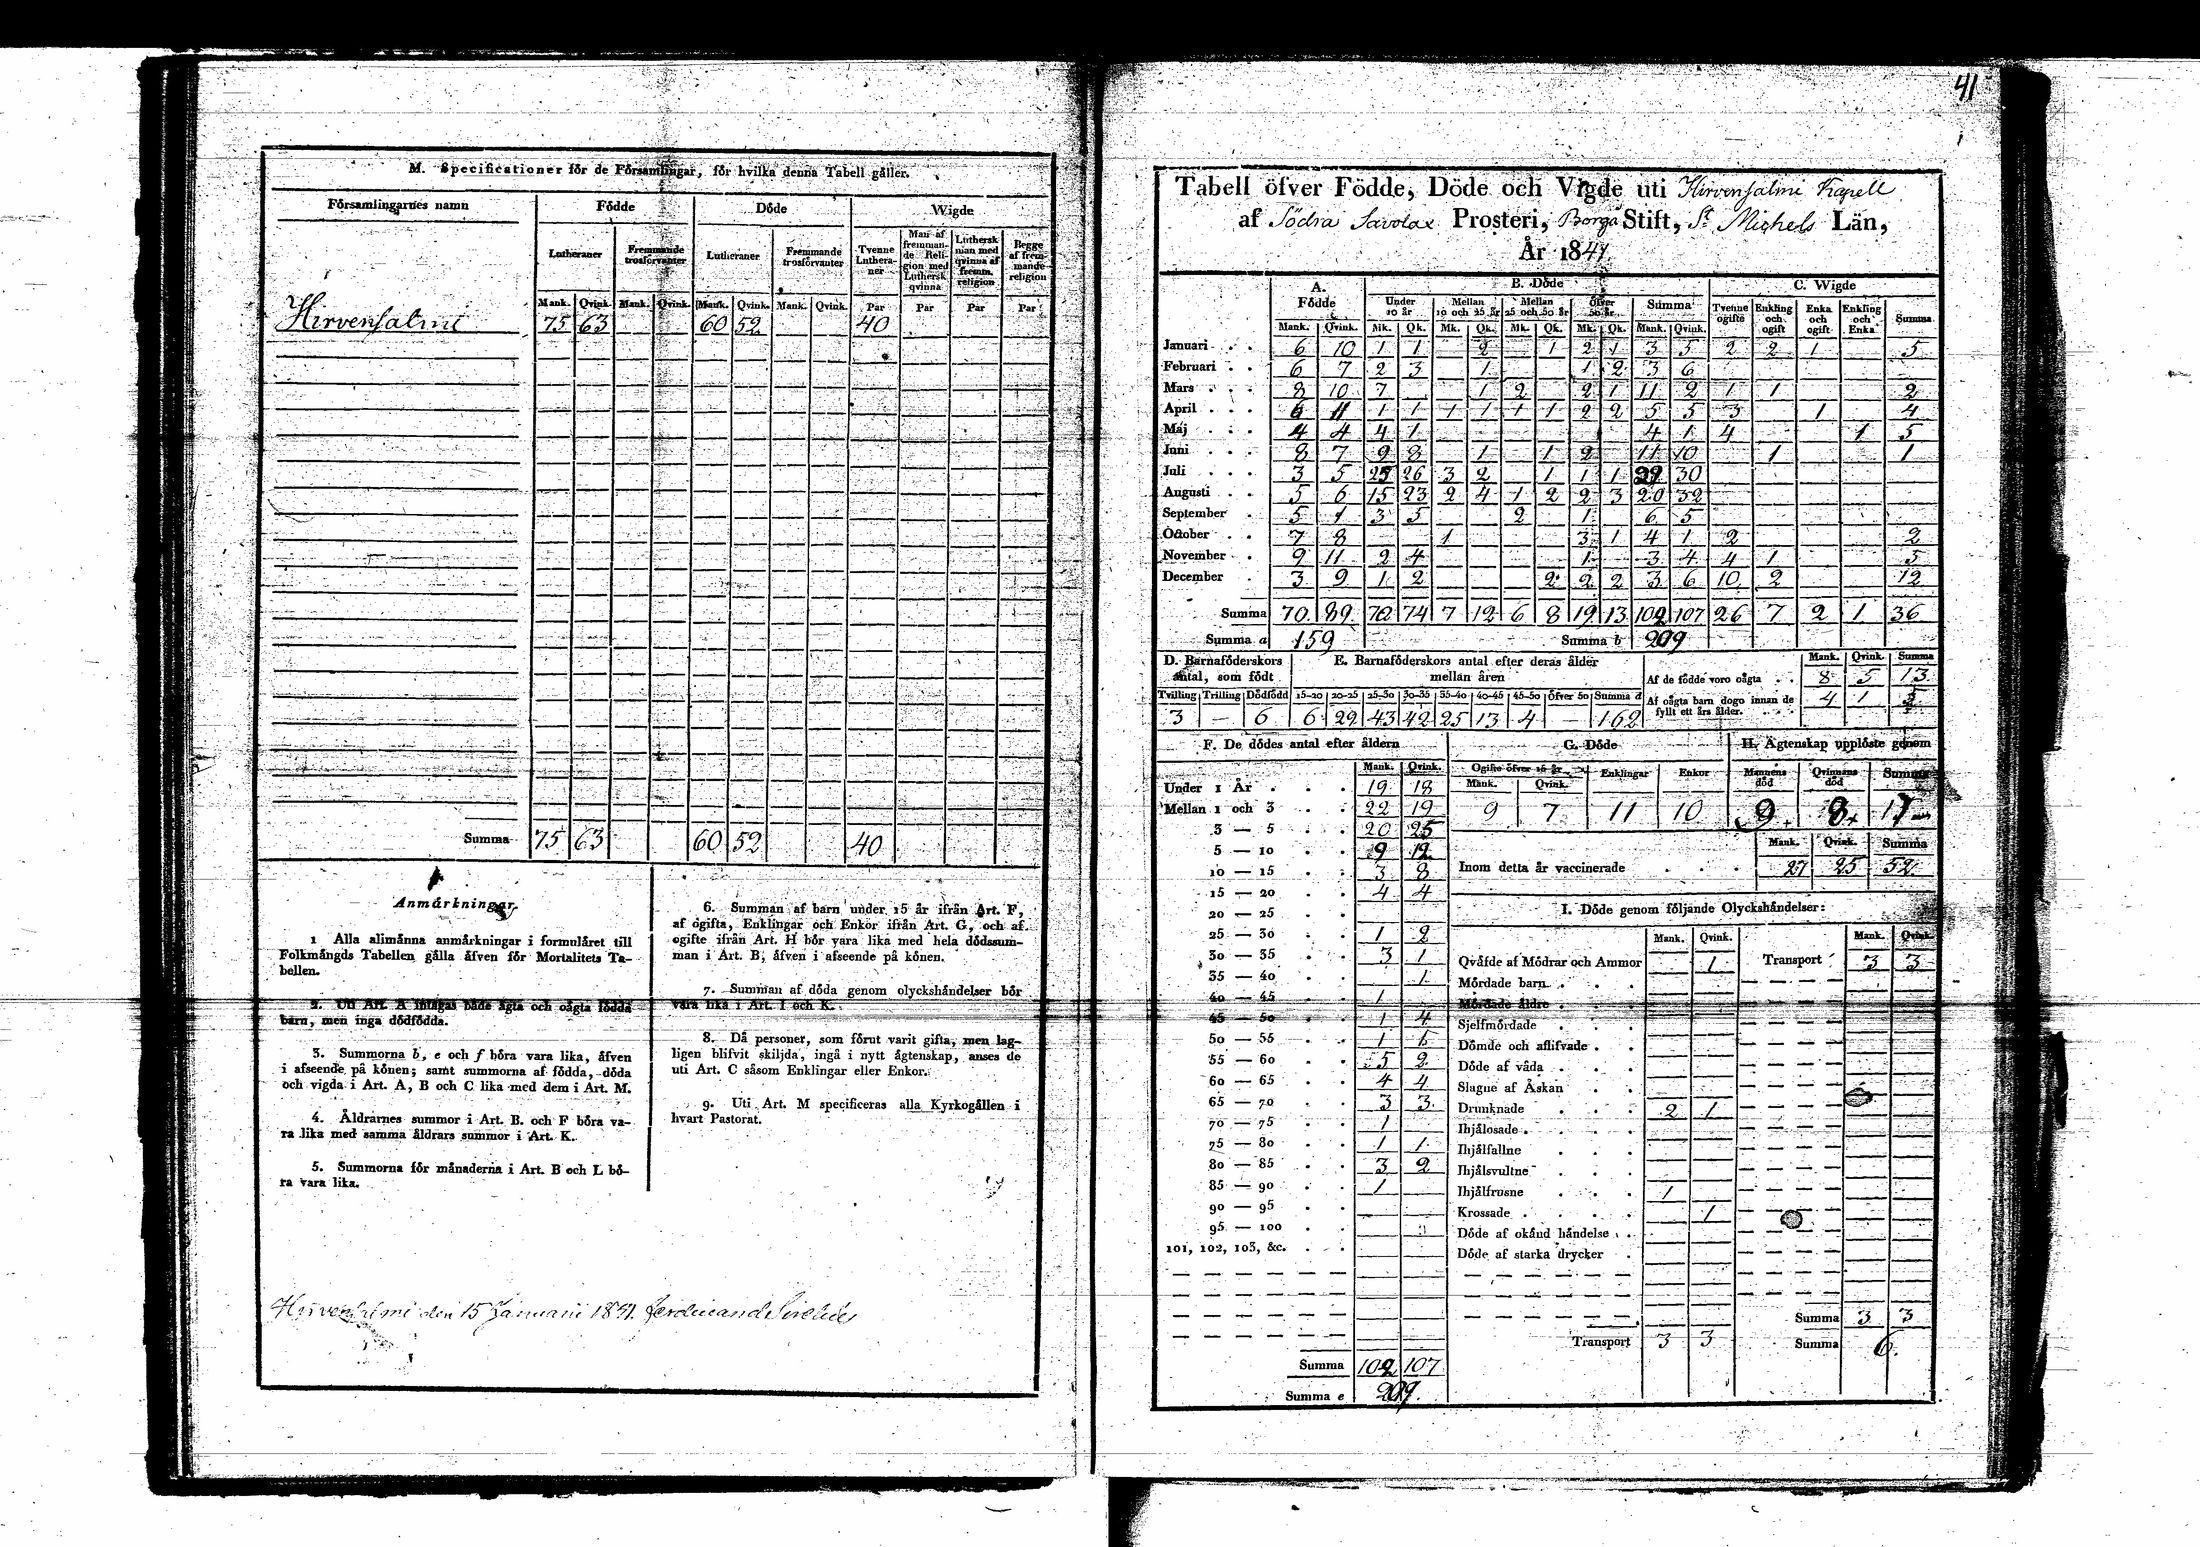 M. Specificationer för de Församlingar, för hvilka denna Tabell gäller.
Församlingarnes namn Födde Döde Wigde
Lutheraner Fremmande trosförvanter Lutheraner Fremmande trosförvanter Tvenne Lutheraner Man af fremmande Religion med Luthersk qvinna Luthersk man med qvinna af fremm. religion Begge af fremmande religion
Mank. Qvink. Mank. Qvink. Mank. Qvink. Mank. Qvink. Par Par Par Par
Hirvensalmi 75 63 60 52 40
Summa 75 63 60 52 40
Anmärkningar.
1 Alla allmänna anmärkningar i formuläret till
Folkmängds Tabellen gälla äfven för Mortalitets Ta-
bellen.
2. Uti Art. A intagas både ägta och oägta födda
barn, men inga dödfödda.
3. Summorna b, e och f böra vara lika, äfven
i afseende på könen; samt summorna af födda, döda
och vigda i Art. A, B och C lika med dem i Art. M.
4. Åldrarnes summor i Art. B. och F böra va-
ra lika med samma åldrars summor i Art. K.
5. Summorna för månaderna i Art. B och L bö-
ra vara lika.
6. Summan af barn under 15 år ifrån Art. F,
af ogifta, Enklingar och Enkor ifrån Art. G, och af
ogifte ifrån Art. H bör vara lika med hela dödssum-
man i Art. B, äfven i afseende på könen.
7. Summan af döda genom olyckshändelser bör
vara lika i Art. I och K.
8. Då personer, som förut varit gifta, men lag-
ligen blifvit skiljda, ingå i nytt ägtenskap, anses de
uti Art. C såsom Enklingar eller Enkor.
9. Uti Art. M specificeras alla Kyrkogällen i
hvart Pastorat.
Hirvensalmi den 15 Januarii 1851. Ferdinand
41
Tabell öfver Födde, Döde och Vigde uti Hirvensalmi Kapell
af Södra Savolax Prosteri, Borgå Stift, St Michels Län,
År 18
A. Födde B. Döde C. Wigde
Under 10 år Mellan 10 och 25 år Mellan 25 och 50 år Öfver 50 år Summa Tvenne ogifte Enkling och ogift Enka och ogift Enkling och Enka Summa
Mank. Qvink. Mk. Qk. Mk. Qk. Mk. Qk. Mk. Qk. Mank. Qvink.
Januari 6 10 1 1 2 1 2 1 3 5 2 2 1 5
Februari 6 7 2 3 1 1 2 3 6
Mars 8 10 7 1 2 2 1 11 2 1 1 2
April 6 11 1 1 1 1 1 1 2 2 5 5 3 1 4
Maj 4 4 4 1 4 1 4 1 5
Juni 8 7 9 8 1 1 2 11 10 1 1
Juli 3 5 25 26 3 2 1 1 1 29 30
Augusti 5 6 15 23 2 4 1 2 2 3 20 32
September 5 1 3 5 2 1 6 5
October 7 8 1 3 1 4 1 2 2
November 9 11 2 4 1 3 4 4 1 5
December 3 9 1 2 2 2 2 3 6 10 2 12
Summa 70 89 70 74 7 12 6 8 19 13 102 107 26 7 2 1 36
Summa a 159 Summa b 209
D. Barnaföderskors antal, som födt
E. Barnaföderskors antal efter deras ålder mellan åren
Tvilling Trilling Dödfödd 15-20 20-25 25-30 30-35 35-40 40-45 45-50 Öfver 50 Summa d
3 — 6 6 29 43 42 25 13 4 — 162
Mank. Qvink. Summa
Af de födde voro oägta 8 5 13
Af oägta barn dogo innan de fyllt ett års ålder. 4 1 5
F. De dödes antal efter åldern
Mank. Qvink.
Under 1 År 19 18
Mellan 1 och 3 22 19
3 — 5 20 25
5 — 10 9 12
10 — 15 3 8
15 — 20 4 4
20 — 25
25 — 30 1 2
30 — 35 3 1
35 — 40 1
40 — 45 1
45 — 50 1 4
50 — 55 1 1
55 — 60 5 2
60 — 65 4 4
65 — 70 3 3
70 — 75 1
75 — 80 1 1
80 — 85 3 2
85 — 90 1
90 — 95
95 — 100
101, 102, 103, &c.
Summa 102 107
Summa e 209
G. Döde
Ogifte öfver 15 år Enklingar Enkor
Mank. Qvink.
9 7 11 10
H. Ägtenskap upplöste genom
Mannens död Qvinnans död Summa
9 8 17
Mank. Qvink. Summa
Inom detta år vaccinerade 27 25 52
I. Döde genom följande Olyckshändelser:
Mank. Qvink. Mank. Qvink.
Qväfde af Mödrar och Ammor 1 Transport 3 3
Mördade barn
Mördade äldre
Sjelfmördade
Dömde och aflifvade
Döde af våda
Slagne af Åskan
Drunknade 2 1
Ihjälosade
Ihjälfallne
Ihjälsvultne
Ihjälfrusne 1
Krossade 1
Döde af okänd händelse
Döde af starka drycker
Summa 3 3
Transport 3 3 Summa 6.